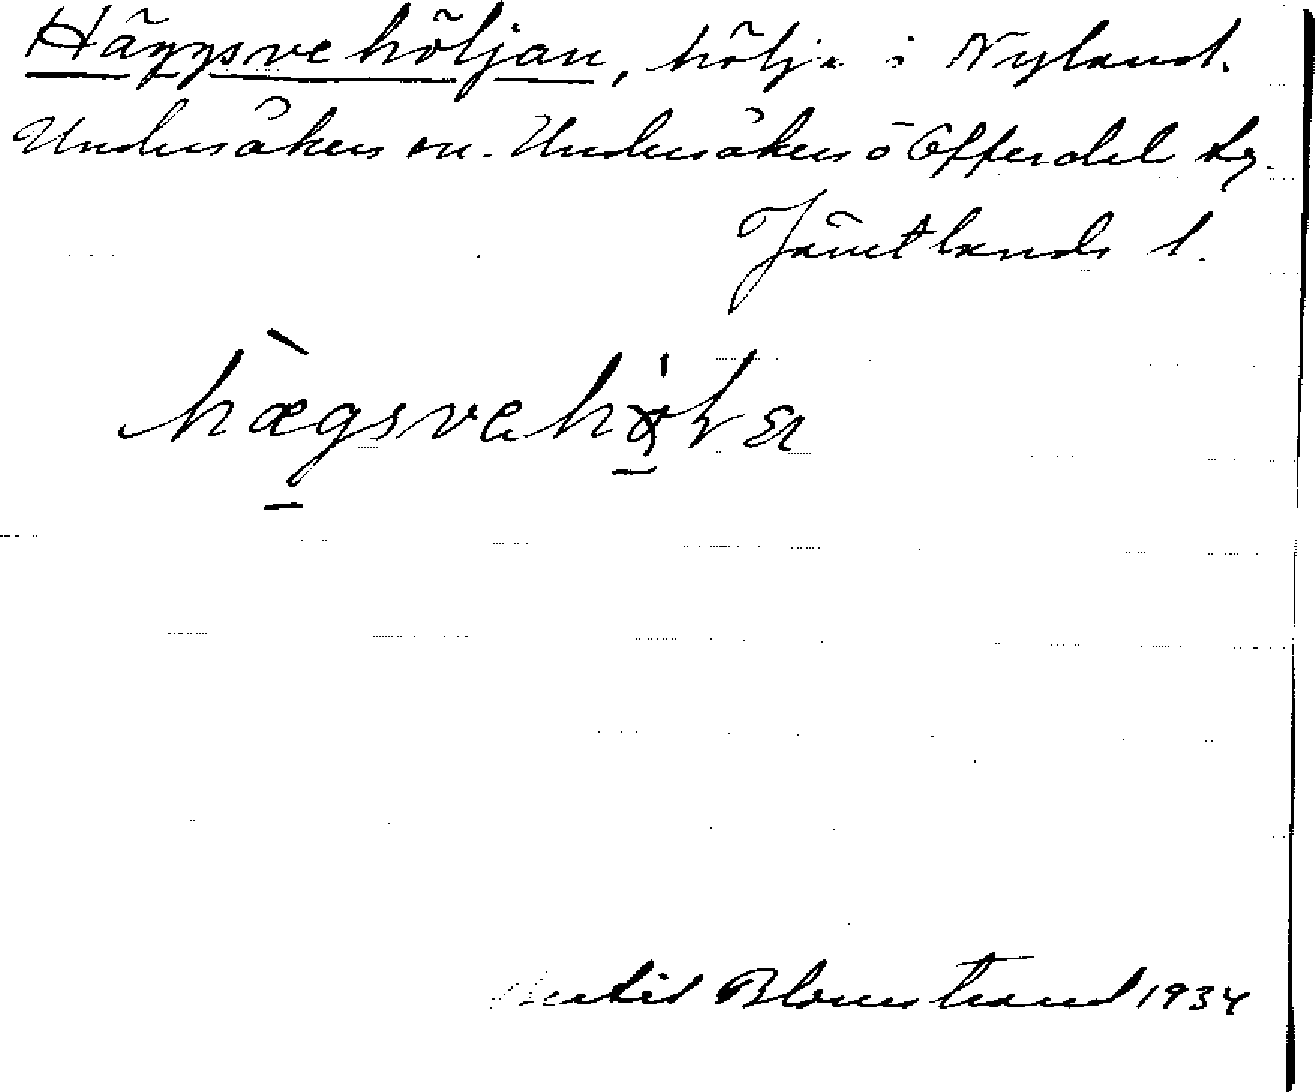 Häggsvehöljan, hölja i Nyland.
Undersåkers sn. Undersåkers o Offerdal tg.
Jämtlands l.
hægsveh
Blomstrand 1934